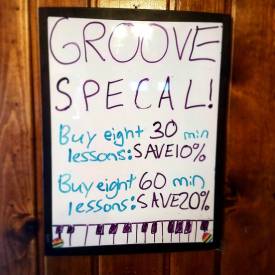 GROOVE
SPECAL!
Buy eight 30 min
lessons: SAVE 10%
Buy eight 60 min
lessons: SAVE 20%